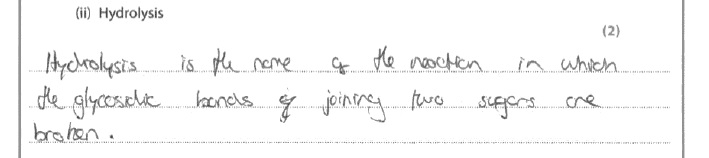 (ii) Hydrolysis
(2)
Hydrolysis is the name of the reaction in which
the glycosidic bonds joining two sugars are
broken.